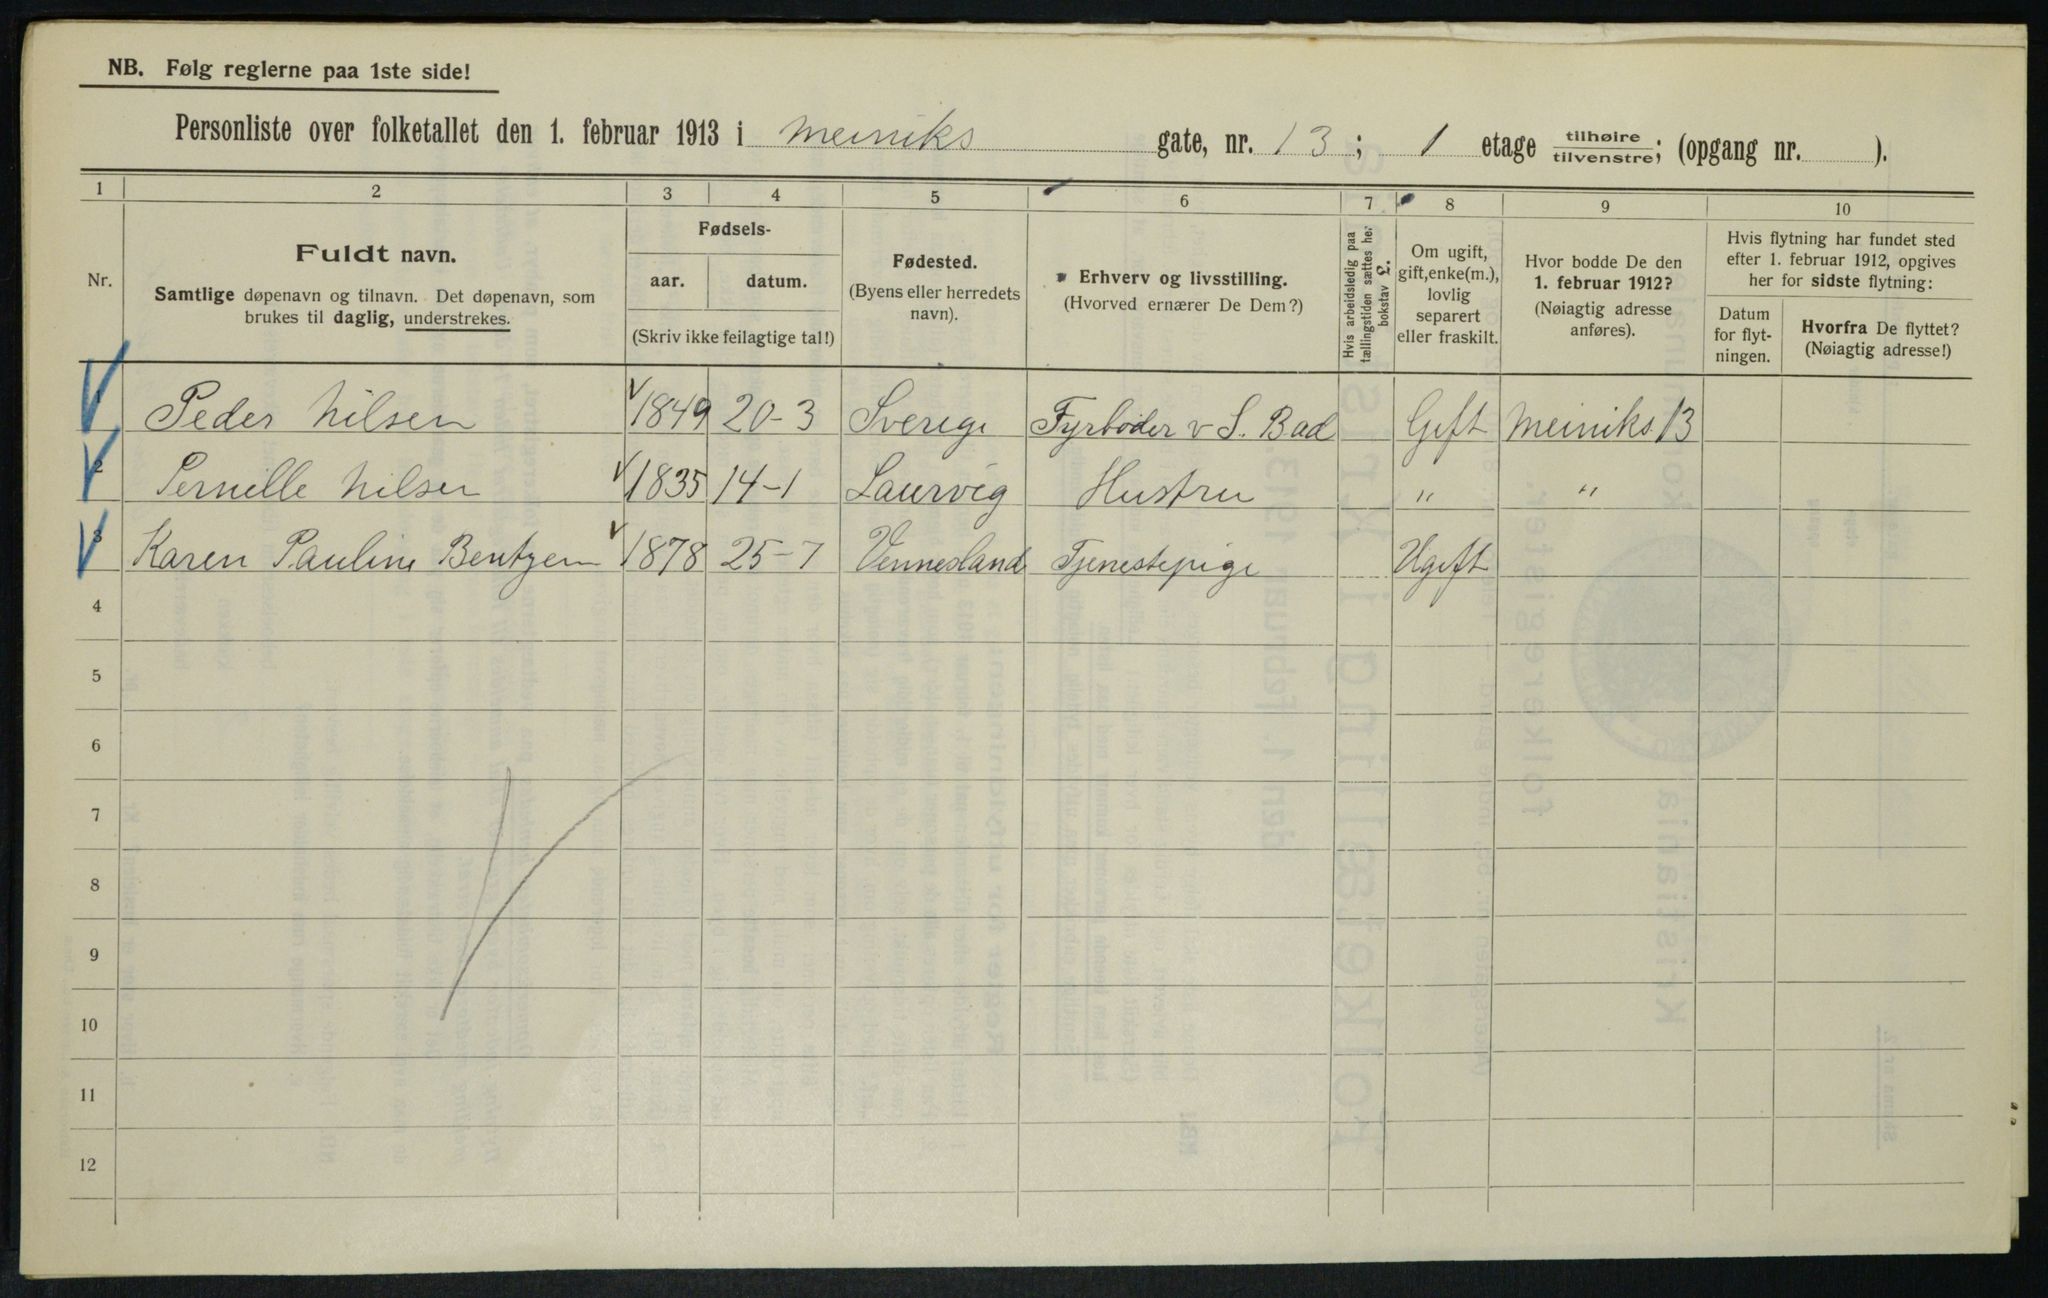 NB. Følg reglerne paa 1ste side!
Personliste over folketallet den 1. februar 1913 i Meiniks gate, nr. 13; 1 etage tilhøire/tilvenstre; (opgang nr. ).
1 2 3 4 5 6 7 8 9 10
Nr.
Fuldt navn.
Samtlige døpenavn og tilnavn. Det døpenavn, som
brukes til daglig, understrekes.
Fødsels-
aar. datum.
(Skriv ikke feilagtige tal!)
Fødested.
(Byens eller herredets
navn).
Erhverv og livsstilling.
(Hvorved ernærer De Dem?)
Hvis arbeidsledig paa
tællingstiden sættes her
bokstav L.
Om ugift,
gift, enke(m.),
lovlig
separert
eller fraskilt.
Hvor bodde De den
1. februar 1912?
(Nøiagtig adresse
anføres).
Hvis flytning har fundet sted
efter 1. februar 1912, opgives
her for sidste flytning:
Datum
for flyt-
ningen.
Hvorfra De flyttet?
(Nøiagtig adresse!)
1 Peder Nilsen 1849 20-3 Sverige Fyrbøder v S. Bad Gift Meiniks 13
2 Pernelle Nilsen 1835 14-1 Laurvig Hustru " "
3 Karen Pauline Bentzen 1878 25-7 Vennesland Tjenestepige Ugift
4
5
6
7
8
9
10
11
12